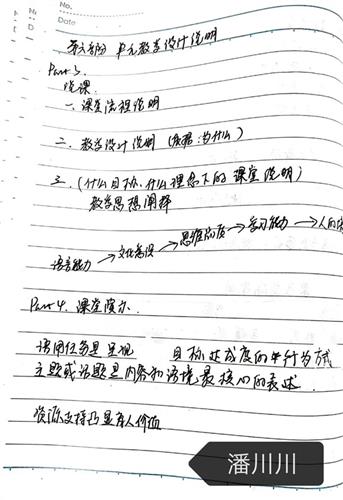 No.
Date
第六部分 单元教学设计说明
Part 3.
说课
一、课堂流程说明
二、教学设计说明 (依据:为什么)
三、(什么目标、什么理念下的课堂说明)
教学思想阐释
语言能力→文化意识→思维品质→学习能力→人的
Part 4. 课堂演示
语用任务是呈现 目标达成度的 行为方式
主题或话题是内容和语境最核心的表述.
资源支持凸显育人价值
潘川川